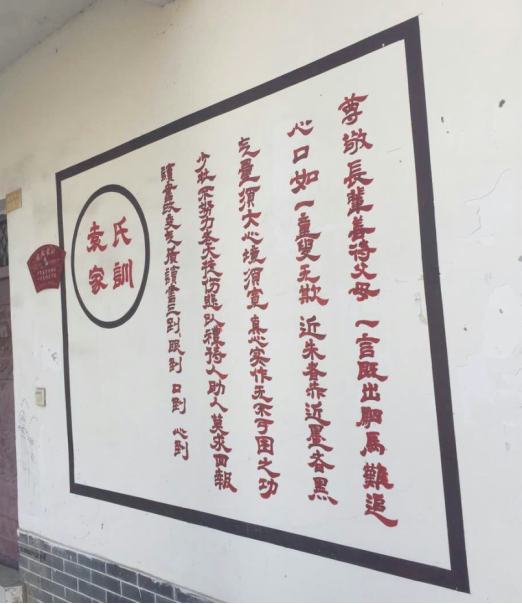 尊敬長輩善待父母 一言既出駟馬難追
心口如一童叟无欺 近朱者赤近墨者黑
气量須大心境須寬 真心实作无不可图之功
少壮不努力老大徒伤悲 以禮待人助人莫求回報
讀書三到 眼到 口到 心到
袁氏
家訓